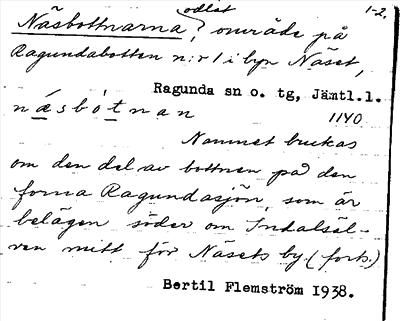 1-2.
odlat
Näsbottnarna, område på
Ragundabotten n:r 1 i byn Näset,
Ragunda sn o. tg, Jämtl.l.
næsbòtnan 1140
Namnet brukas
om den del av bottnen på den
forna Ragundasjön, som är
belägen söder om Indalsäl-
ven mitt för Näsets by. (forts.)
Bertil Flemström 1938.